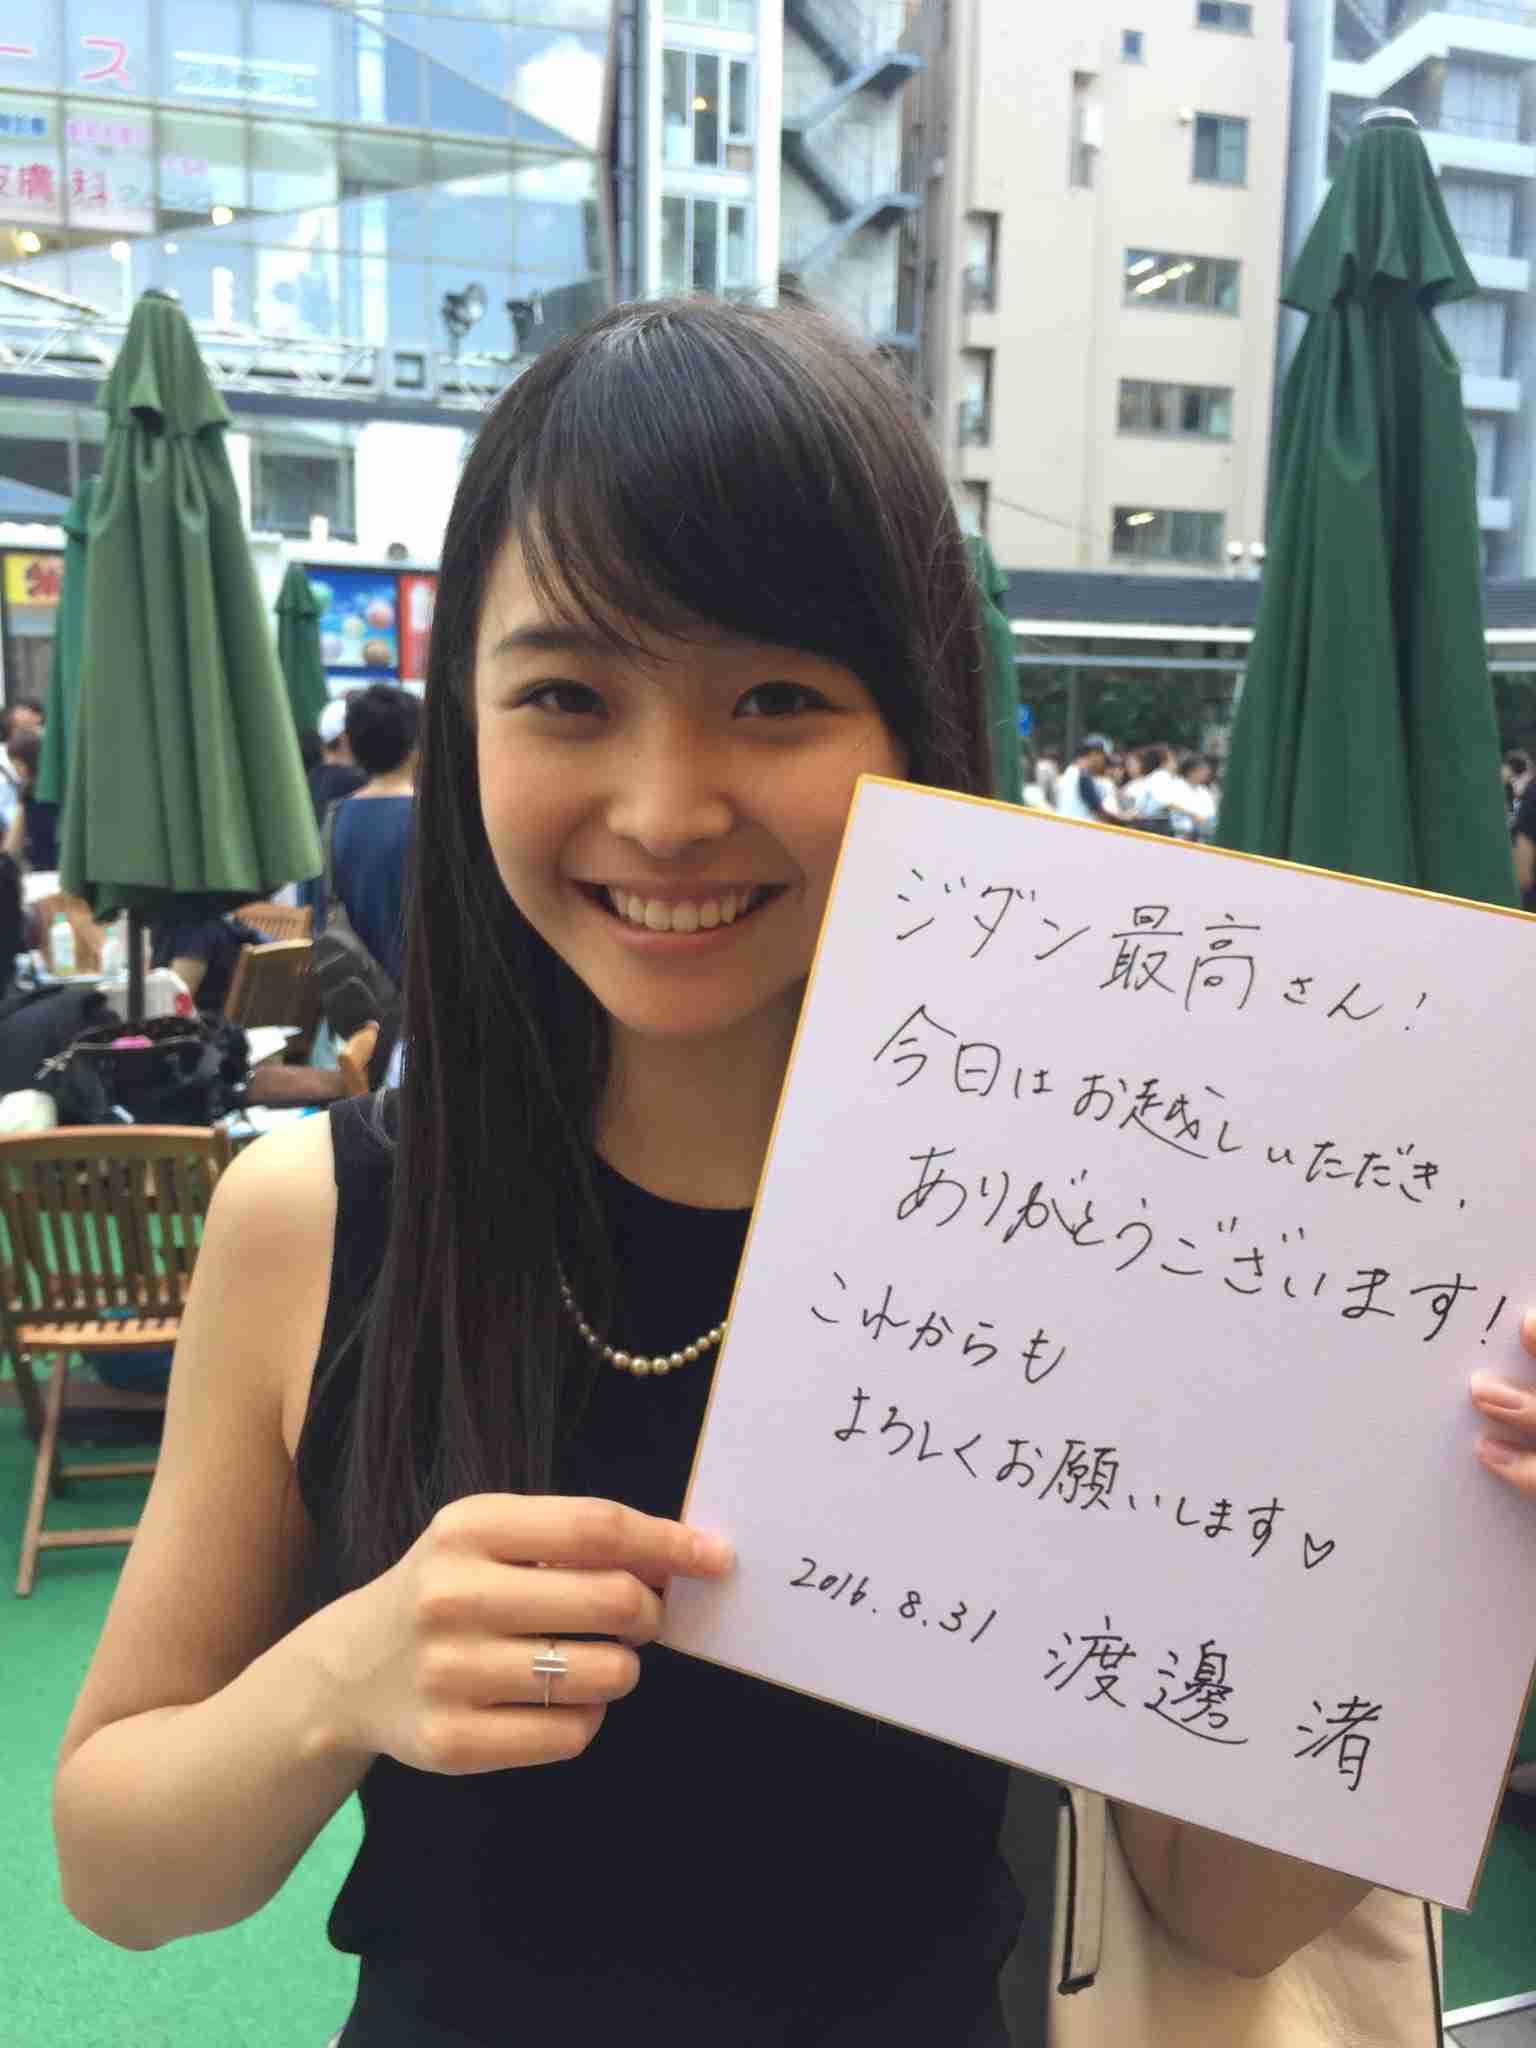 ース
皮膚科
ジダン最高さん!
今日はお越しいただき、
ありがとうございます!
これからも
よろしくお願いします♡
2016.8.31 渡邊 渚